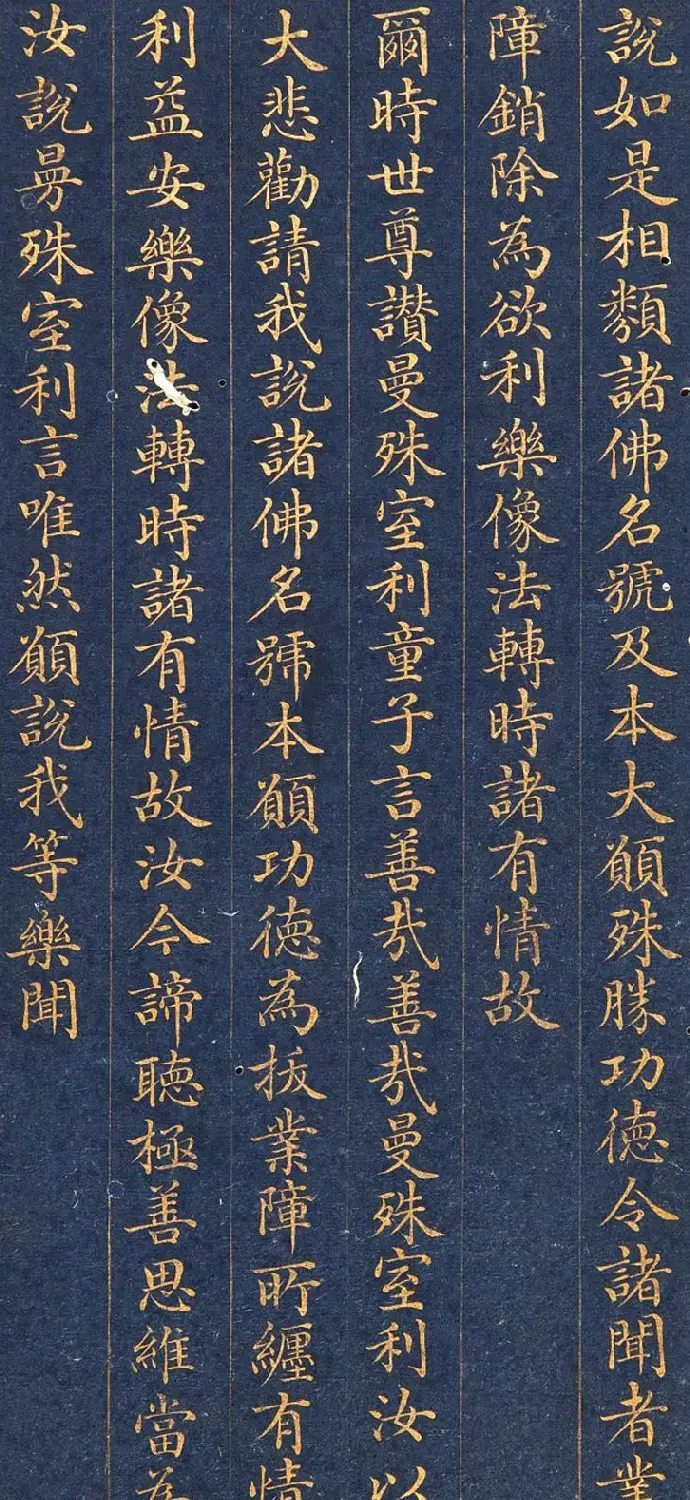 說如是相類諸佛名號及本大願殊勝功德令諸聞者業
障銷除為欲利樂像法轉時諸有情故
爾時世尊讃曼殊室利童子言善哉善哉曼殊室利汝以
大悲勸請我說諸佛名號本願功德為拔業障所纏有情
利益安樂像法轉時諸有情故汝今諦聽極善思維當為
汝說曼殊室利言唯然願說我等樂聞